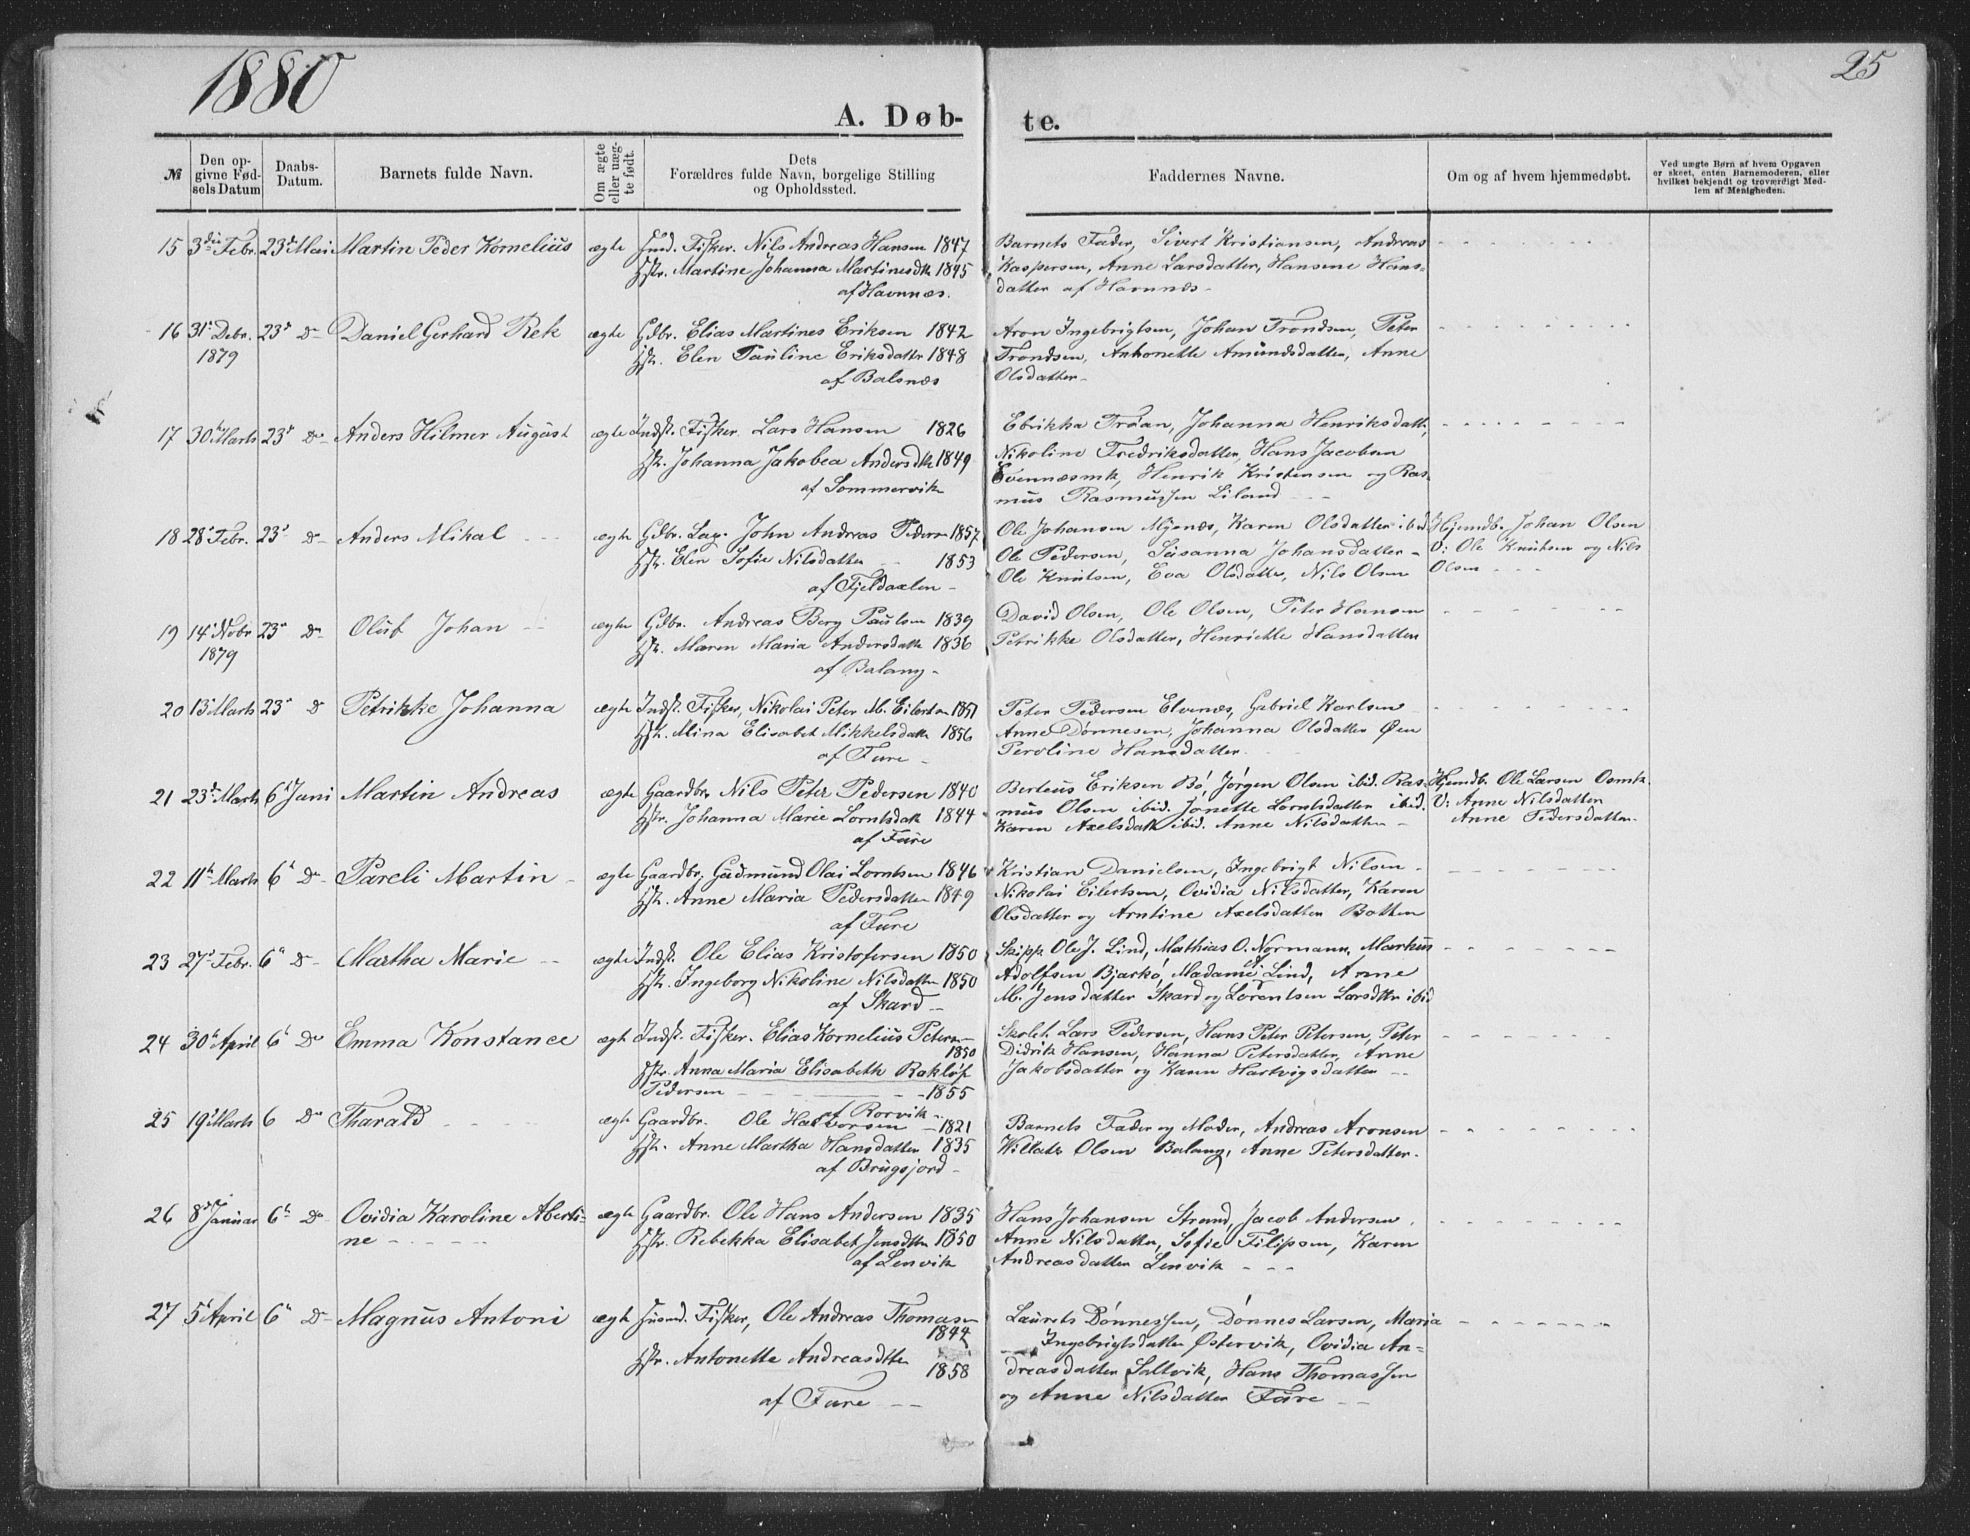 1880
25
A. Døb-
te.
№
Den op-
givne Fød-
sels Datum
Daabs-
Datum.
Barnets fulde Navn.
Om ægte
eller uæg-
te født.
Dets
Forældres fulde Navn, borgelige Stilling
og Opholdssted.
Faddernes Navne.
Om og af hvem hjemmedøbt.
Ved uægte Børn af hvem Opgaven
er skeet, enten Barnemoderen, eller
hvilket bekjendt og troværdigt Med-
lem af Menigheden.
15 3die Febr. 23d Mai Martin Peder Kornelius ægte Fisker. Nils Andreas Hansen 1847
Hstr. Martine Johanna Martinesdtr 1845
af Havnnæs.
Barnets Fader, Sivert Kristiansen, Andreas
Kaspersen, Anne Larsdatter, Hansine Hans-
datter af Havnnæs
16 31 Debr. 23 Do Daniel Gerhard Rek ægte Gdbr. Elias Martines Eriksen 1842
1879 Hstr. Elen Pauline Eriksdattr 1848
af Balsnæs
Aron Ingebrigtsen, Johan Trondsen, Peter
Trondsen, Anthonette Amundsdatter, Anne
Olsdatter
17 30 Marts 23 Do Anders Hilmer August ægte Indst. Fisker Lars Hansen 1826
Hstr. Johanna Jakobea Andersdtr 1849
af Sommervik
Trøan, Johanna Henriksdatt,
Nikoline Fredriksdatter, Hans Jacobsen
Evennæsmk, Henrik Kristensen og Ras-
mus Rasmussen Liland
18 28 Febr. 23 Do Anders Mikal ægte Gdbr. John Andreas Peders 1857
Hstr. Elen Sofie Nilsdatter 1853
af Fjeldaxlen
Ole Johansen Myenæs, Karen Olsdatter ibid
Ole Pedersen, Susanna Johansdatter
Ole Knutsen, Eva Olsdatter, Nils Olsen
Hjemdb. Johan Olsen
V: Ole Knutsen og Nils
Olsen
19 14 Nobr 23 Do Oluf Johan ægte Gdbr. Andreas Berg Paulsen 1839
1879 Hstr. Maren Maria Andersdattr 1836
af Balang
David Olsen, Ole Olsen, Peter Hansen
Petrikke Olsdatter, Henriette Hansdatter
20 13 Marts 23 Do Petrikke Johanna ægte Indst. Fisker, Nikolai Peter M. Eilertsen 1851
Hstr. Mina Elisabet Mikkelsdattr 1856
af Fure
Peter Pedersen Elvenæs, Gabriel Karlsen
Anne Dønnesen, Johanna Olsdatter Øen
Peroline Hansdatter
21 23 Marts 6 Juni Martin Andreas ægte Gaardbr. Nils Peter Pedersen 1840
Hstr. Johanna Marie Lorntsdatt 1844
af Fure
Berteus Eriksen Bø, Jørgen Olsen ibid. Ras-
mus Olsen ibid. Jonette Lorntsdatter ibid.
Karen Axelsdatt ibid. Anne Nilsdatter
Hjemdb. Ole Larsen
V: Anne Nilsdatter
Anne Pedersdatter
22 11 Marts 6 Do Pareli Martin ægte Gaardbr. Gudmund Olai Lorntsen 1846
Hstr. Anne Maria Pedersdatter 1849
af Fure
Kristian Danielsen, Ingebrigt Nilsen
Nikolai Eilertsen, Ovidia Nilsdatter, Karen
Olsdatter og Arntine Axelsdatter Botten
23 27 Febr. 6 Do Martha Marie ægte Indst. Ole Elias Kristofersen 1850
Hstr. Ingeborg Nikoline Nilsdatter 1850
af Skard
Skipp. Ole J. Lind, Mathias O. Normann, Markus
Adolfsen Bjarkø, Madame Lind, Anne
M. Jensdatter Skard og Lorentsen Larsdtr ibid
24 30 April 6 Do Emma Konstance ægte Indst. Fisker. Elias Kornelius Petersen
1850
Hstr. Anna Maria Elisabeth Rakløf
Pedersen 1855
af Rorvik
Lars Pedersen, Hans Peter Petersen, Peter
Didrik Hansen, Hanna Petersdatter, Anne
Jakobsdatter og Karen Hartvigsdatter
25 19 Marts 6 Do Tharald ægte Gaardbr. Ole Halvorsen 1821
Hstr. Anne Martha Hansdatter 1835
af Brugsjord
Barnets Fader og Moder, Andreas Aronsen
Willats Olsen Balang, Anne Petersdatter
26 8 Januar 6 Do Ovidia Karoline Aberti- ægte Gaardbr. Ole Hans Andersen 1835
ne Hstr. Rebekka Elisabet Jensdtter 1850
af Lenvik
Hans Johansen Strand, Jacob Andersen
Anne Nilsdatter, Sofie Filipsen, Karen
Andreasdatter Lenvik
27 5 April 6 Do Magnus Antoni ægte Fisker, Ole Andreas Thomasen
1844
Hstr. Antonette Andreasdtter
1858
af Fure
Laurets Dønnessen, Dønnes Larsen, Maria
Ingebrigtsdatter Østervik, Ovidia An-
dreasdatter Saltvik, Hans Thomassen
og Anne Nilsdatter Fure